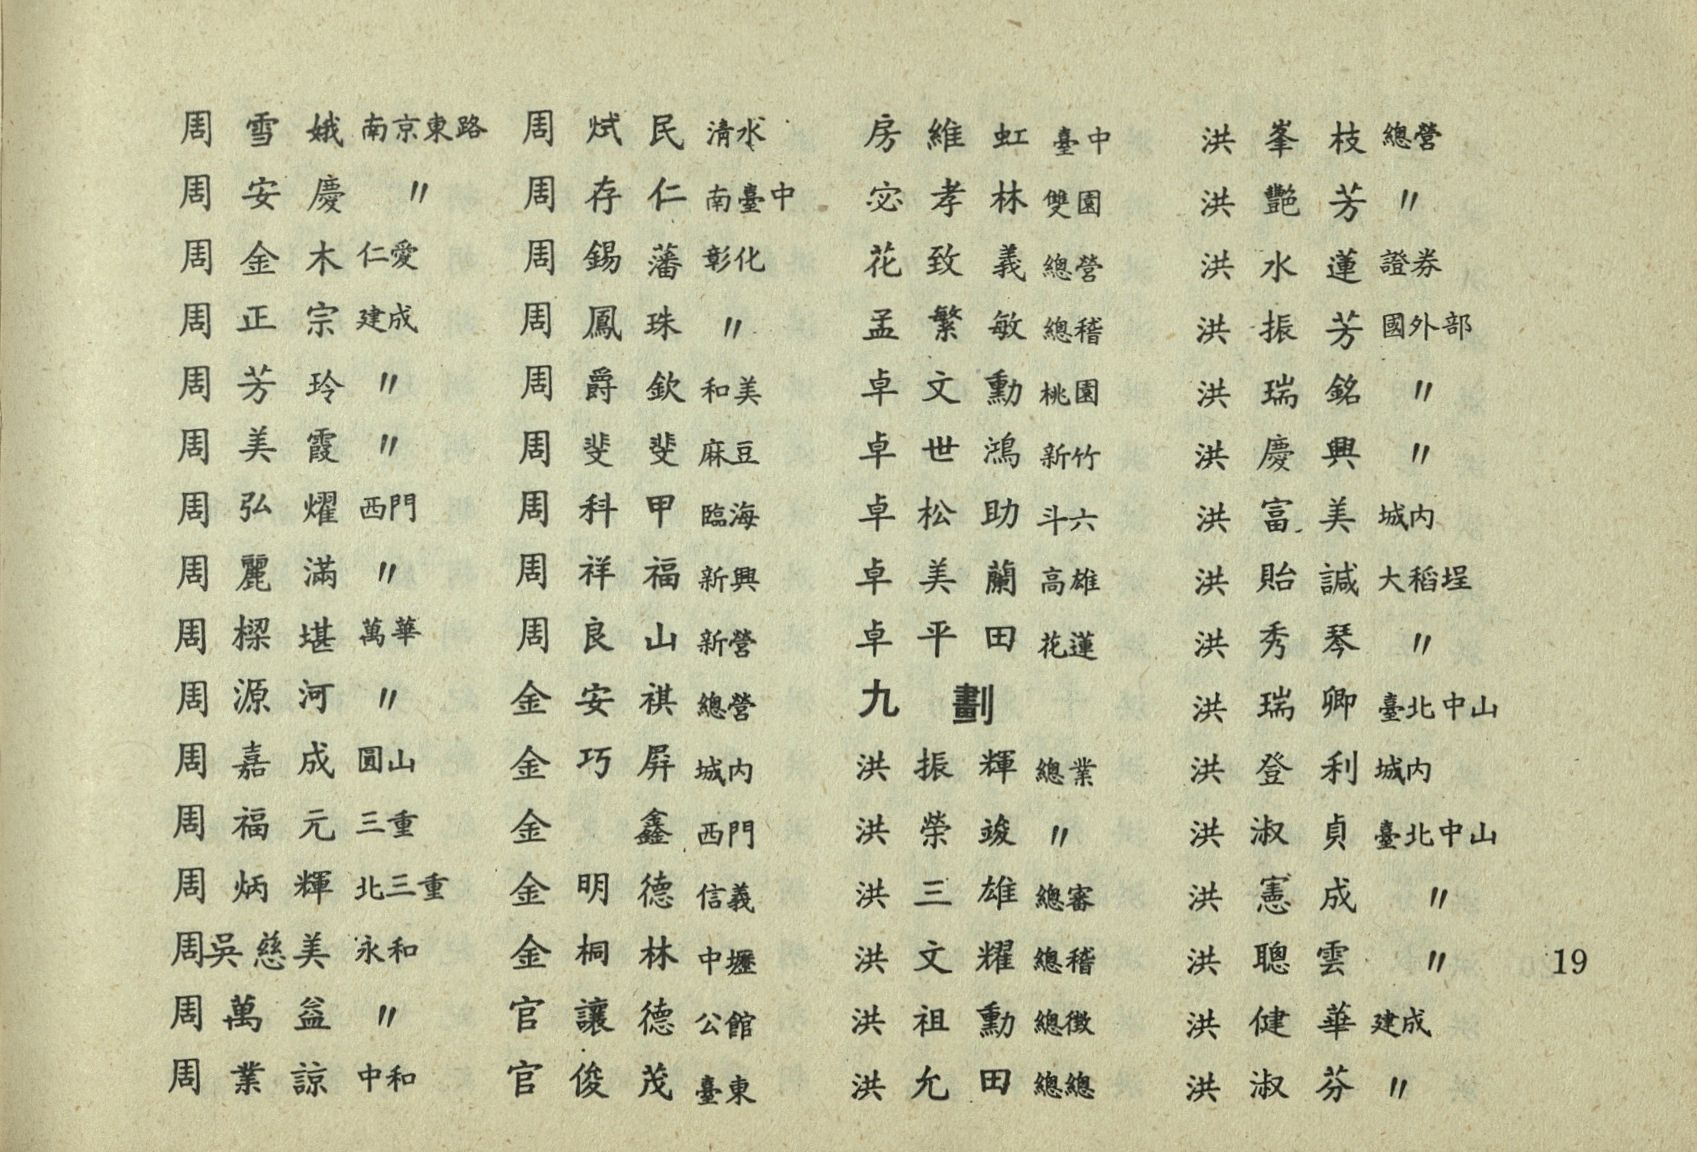 周雪娥 南京東路
周安慶 〃
周金木 仁愛
周正宗 建成
周芳玲 〃
周美霞 〃
周弘燿 西門
周麗滿 〃
周樑堪 萬華
周源河 〃
周嘉成 圓山
周福元 三重
周炳輝 北三重
周吳慈美 永和
周萬益 〃
周業諒 中和
周烒民 清水
周存仁 南臺中
周錫藩 彰化
周鳳珠 〃
周爵欽 和美
周斐斐 麻豆
周科甲 臨海
周祥福 新興
周良山 新營
金安祺 總營
金巧屏 城內
金鑫 西門
金明德 信義
金桐林 中壢
官讓德 公館
官俊茂 臺東
房維虹 臺中
宓孝林 雙園
花致義 總營
孟繁敏 總稽
卓文勳 桃園
卓世鴻 新竹
卓松助 斗六
卓美蘭 高雄
卓平田 花蓮
九劃
洪振輝 總業
洪榮竣 〃
洪三雄 總審
洪文耀 總稽
洪祖勳 總徵
洪允田 總總
洪峯枝 總營
洪艷芳 〃
洪水蓮 證券
洪振芳 國外部
洪瑞銘 〃
洪慶興 〃
洪富美 城內
洪貽諴 大稻埕
洪秀琴 〃
洪瑞卿 臺北中山
洪登利 城內
洪淑貞 臺北中山
洪憲成 〃
洪聰雲 〃
洪健華 建成
洪淑芬 〃
19